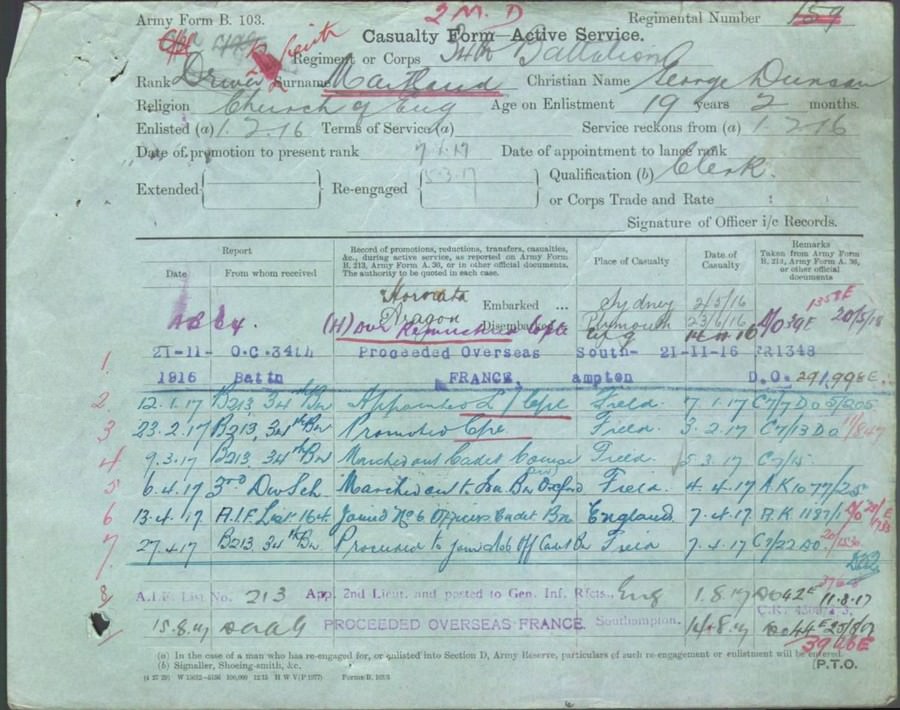 Army Form B. 103.
2 M. D
Regimental Number 159
Casualty Form—Active Service.
Regiment or Corps 34th Battalion
Rank Driver Surname Maitland Christian Name George Duncan
Religion Church of Eng Age on Enlistment 19 years 2 months.
Enlisted (a) 1.2.16 Terms of Service (a) Service reckons from (a) 1.2.16
Date of promotion to present rank 7.1.17 Date of appointment to lance rank
Extended Re-engaged 5.3.17 Qualification (b) Clerk.
or Corps Trade and Rate
Signature of Officer i/c Records.
Report
Date From whom received
Record of promotions, reductions, transfers, casualties, &c., during active service, as reported on Army Form B. 213, Army Form A. 36, or in other official documents. The authority to be quoted in each case.
Place of Casualty
Date of Casualty
Remarks
Taken from Army Form B. 213, Army Form A. 36, or other official documents
Embarked ... Sydney 2/5/16
Aragon Disembarked Plymouth 23/6/16
1. 21-11-1916 O.C. 34th Battn Proceeded Overseas FRANCE. Southampton 21-11-16 FR1348 D.O. 291.998E.
2. 12.1.17 B213, 34th Bn Appointed L/Cpl Field. 7.1.17 C7/7 DO 5/205
3 23.2.17 B213, 34th Bn Promoted Cpl Field. 3.2.17 C7/13 DO
4 9.3.17 B213, 34th Bn Marched out Cadet Course Field. 5.3.17 C7/15
5 6.4.17 3rd Div Sch. Marched out to Oxford Field. 4.4.17 A.K 1077/25
6 13.4.17 A.I.F. List 164 Joined No 6 Officers Cadet Bn England 7.4.17 A.K 1187/1
7 27.4.17 B213, 34th Bn Proceeded to join No 6 Off Cadet Bn Field 7.4.17 C7/22 DO
8 A.I.F. List No. 213 App. 2nd Lieut. and posted to Gen. Inf. Rfcts. Eng 1.8.17 DO 42E 11.8.17
15.8.17 PROCEEDED OVERSEAS FRANCE. Southampton. 14.8.17 DO 44E 25/8/17
(a) In the case of a man who has re-engaged for, or enlisted into Section D, Army Reserve, particulars of such re-engagement or enlistment will be entered.
(b) Signaller, Shoeing-smith, &c.
[P.T.O.
Forms B. 103/3